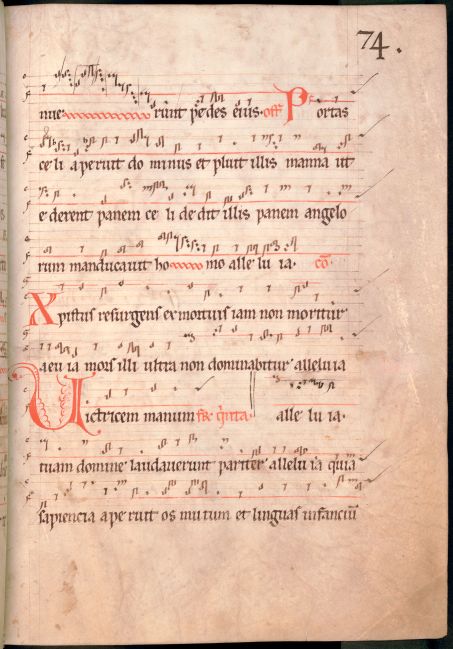 74.
nue runt pedes eius. off Portas
celi aperuit dominus et pluit illis manna ut
ederent panem celi dedit illis panem angelo
rum manducavit homo alleluia. co
Xpistus resurgens ex mortuis iam non moritur
aeuia mors illi ultra non dominabitur alleluia
Victricem manum fr q̄rta alleluia.
tuam domine laudaverunt pariter alleluia quia
sapiencia aperuit os mutum et linguas infanciū